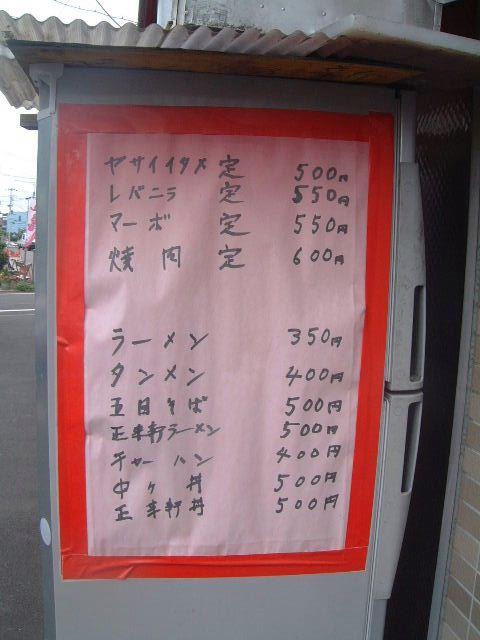 ヤサイイタメ 定 500円
レバニラ 定 550円
マーボ 定 550円
焼肉 定 600円
ラーメン 350円
タンメン 400円
五目そば 500円
正来軒ラーメン 500円
チャーハン 400円
中ヶ丼 500円
正来軒丼 500円